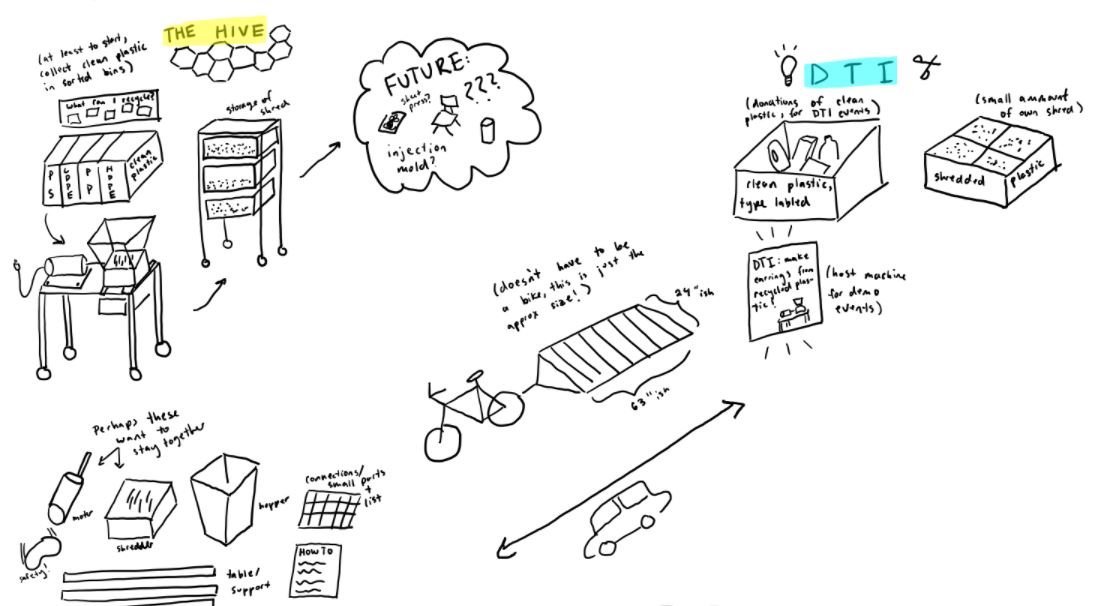 THE HIVE
(at least to start,
collect clean plastic
in sorted bins)
What can I recycle?
PS
LDPE
PP
HDPE
clean
plastic
storage of
shred
FUTURE:
???
sheet
press?
injection
mold?
DTI
(donations of clean
plastic, for DTI events)
clean plastic,
type labled
(small ammount
of own shred)
shredded
plastic
DTI: make
earrings from
recycled plas-
tic!
(host machine
for demo
events)
(doesn't have to be
a bike, this is just the
approx size!)
24"ish
63"ish
Perhaps these
want to
stay together
motor
shredder
hopper
safety!
connections/
small parts
+
list
HOW TO
table/
support